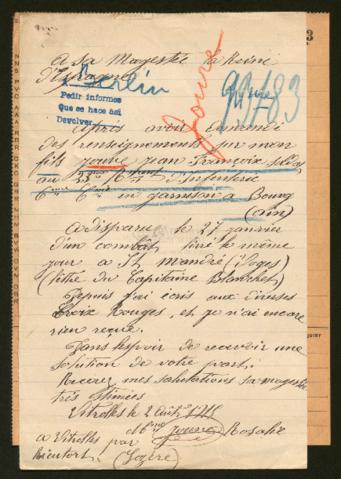 A sa Magestée la Reine
d'Espagne
Berlin
Pedir informes
Que se hace así
Devolver
93183
Jouve
Après avoir
des renseignements sur mon
fils Jouve Jean François soldat
au 23me d'infanterie
6me Cnie en garnison a Bourg
(ain)
a disparu le 27 janvier
d'un combat livré le même
jour a St Mandré (Voges)
du Capitaine Blanchet)
Depuis j'ai écris aux diverses
Croix Rouges, et je n'ai encore
rien reçue.
Dans l'espoir de recevoir une
solution de votre part.
Recevez mes salutations sa magestée
très éstimées
Vitrolles le 2 Août 1915
Mme Jouve Rosalie
a Vitrolles par
Rieutort. (Lozère)